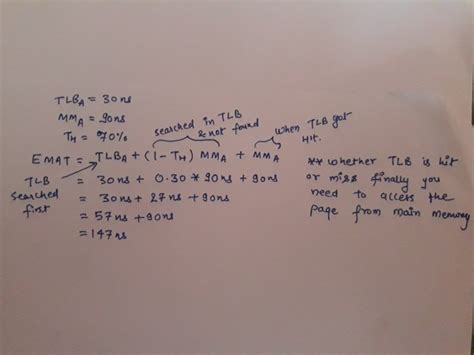 TLBA = 30ns
MMA = 90ns
TH = 70%
searched in TLB
& not found
when TLB got
Hit.
EMAT = TLBA + (1-TH) MMA + MMA
TLB
searched
first
= 30ns + 0.30 * 90ns + 90ns
= 30ns + 27ns + 90ns
= 57ns + 90ns
= 147ns
** whether TLB is hit
or miss finally you
need to access the
page from main memory